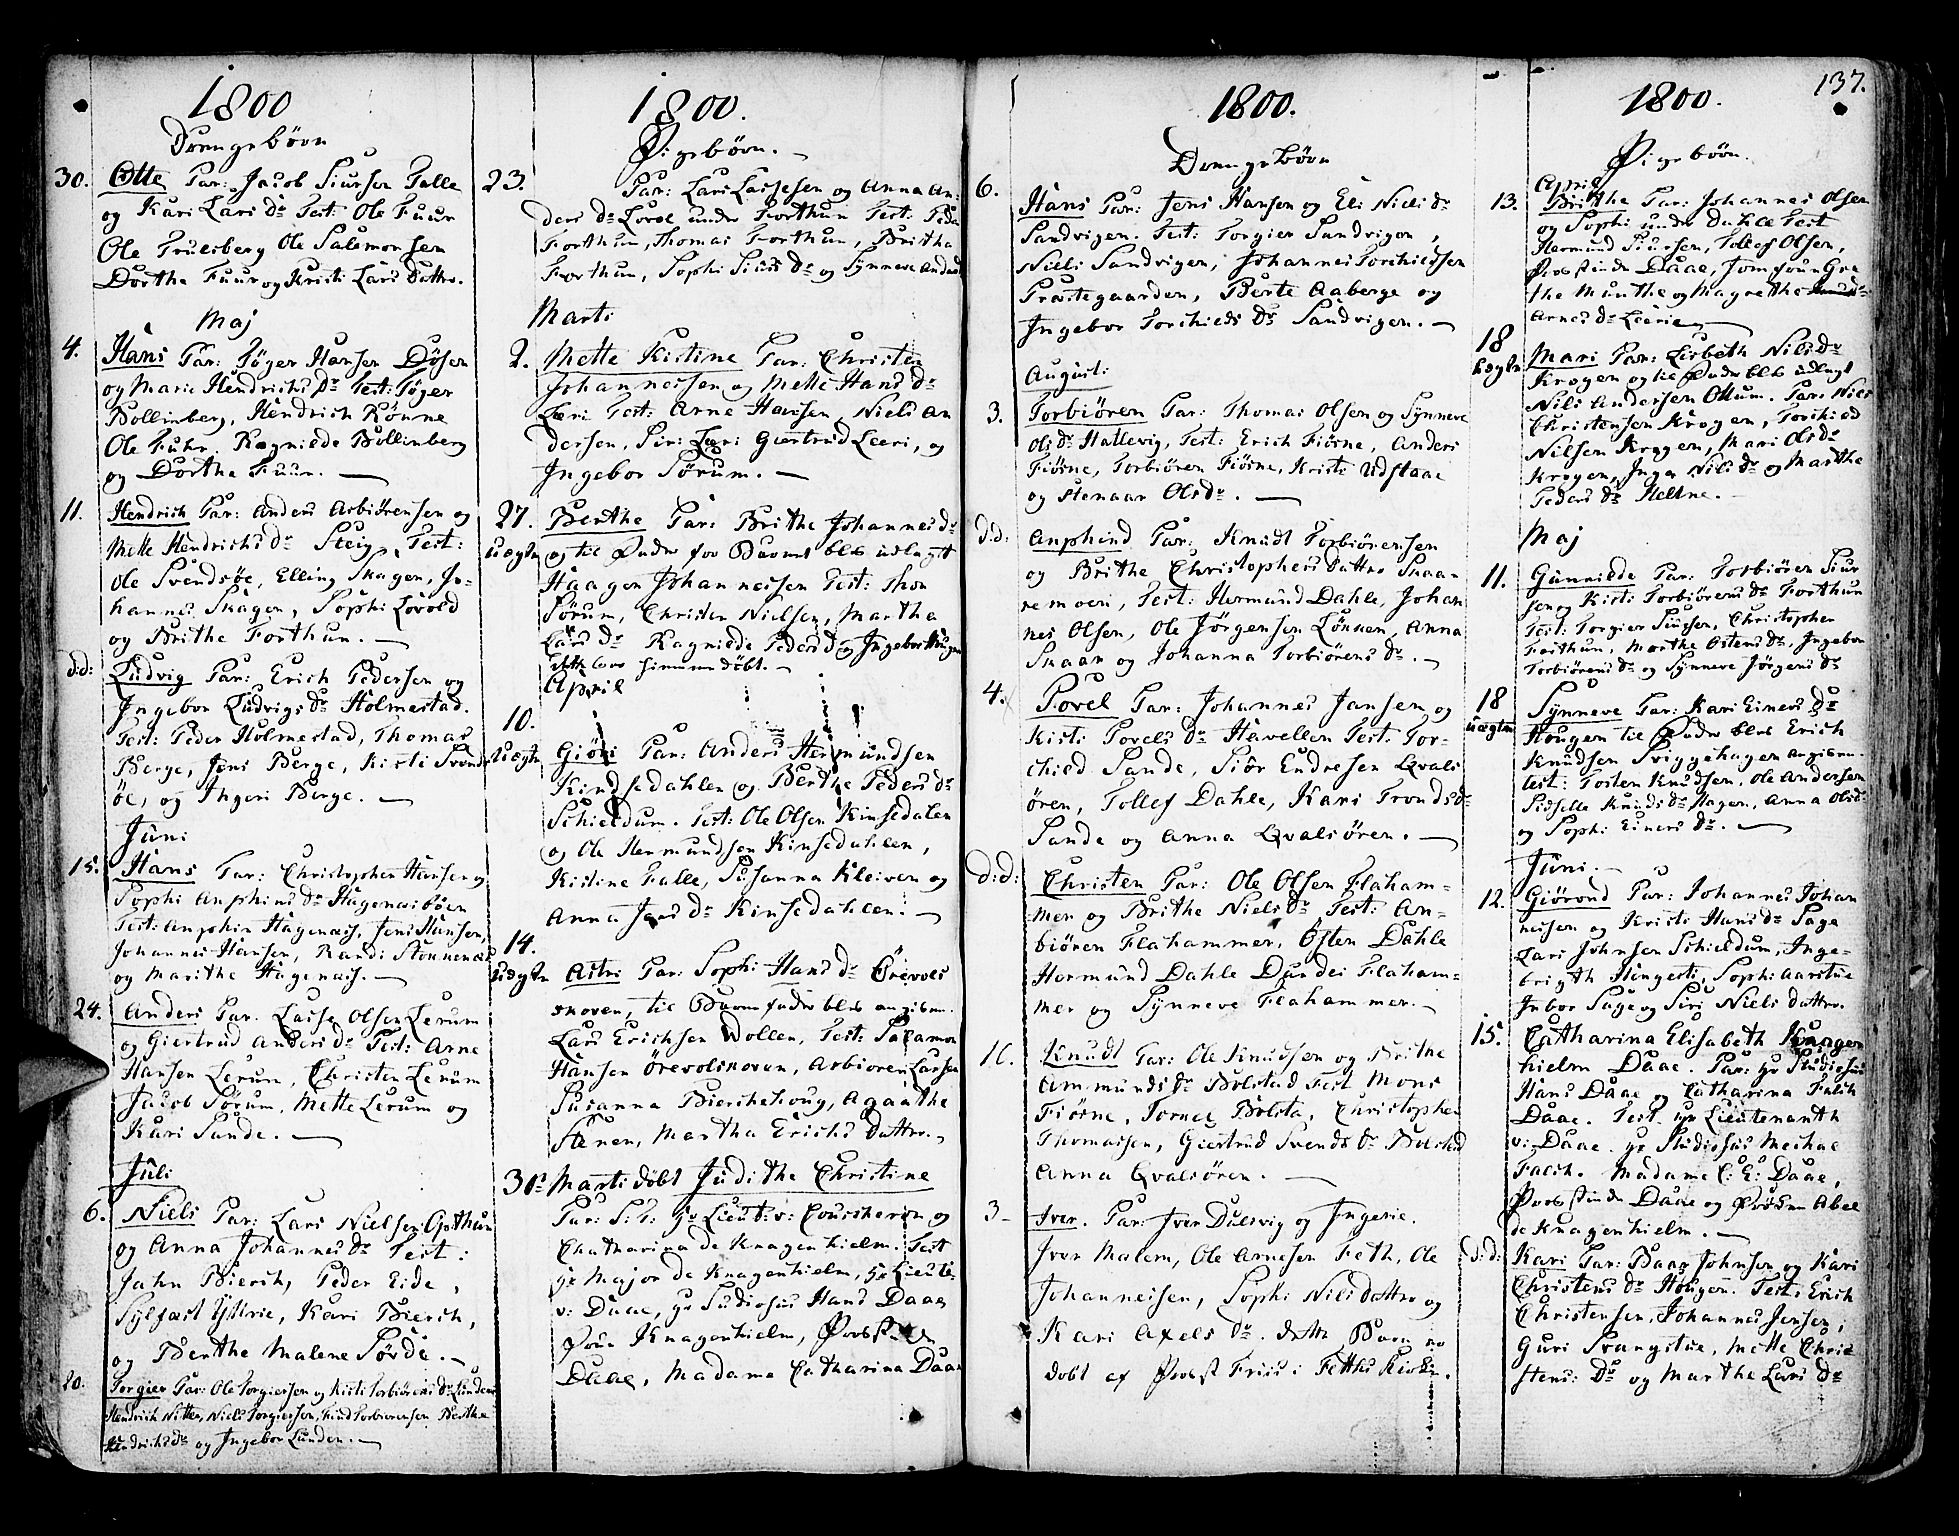 1800
Drengebørn
30. Otte Par: Jacob Siursen Talle
og Kari Lars Dr Test: Ole Fuur
Ole Truesberg Ole Salemonsen
Dorthe Fuur og Kristi Lars Dattr.
Maj
4. Hans Par: Tøger Hansen Døsen
og Marie Hendrichs Dr Test: Tøger
Bollinberg, Hendrich Rønne
Ole Fuhr, Ragnilde Bollinberg
og Dorthe Fuur.
11. Hendrich Par: Anders Arbiørensen og
Mette Hendrichs Dr Steig, Test:
Ole Svendsøe, Elling Skagen, Jo-
hannes Skagen, Sophi Lovold
og Brithe Forthun.
d:d: Ludvig Par: Erich Pedersen og
Ingebor Ludvigs Dr Holmestad.
Test: Peder Holmestad, Thomas
Berge, Jens Berge, Kirsti Svends
øe, og Ingeri Berge.
Juni
15. Hans Par: Christopher Hansen og
Sophi Anphins Dr Hagenæsbøen
Test: Anphin Hagenæs, Jens Hansen,
Johannes Hansen, Randi Stonnenæs
og Marithe Hagenæs.
24. Anders Par. Lasse Olsen Lerum
og Giertrud Anders Dr Test: Arne
Hansen Lerum, Christen Lerum
Jacob Sørum, Mette Lerum og
Kari Sande.
Juli
6. Niels Par: Lars Nielsen Gothun
og Anna Johannes Dr Test:
Jahn Biersh, Peder Eide,
Sylfæst Ystrie, Kari Biersh,
og Berthe Malene Sørde.
20. Torgier Par: Ole Torgiersen og Kirsti Torbiørens Dr Lunden
Hendrich Nitter, Niels Torgiersen, Find Torbiørensen Berthe
Hendrichs Dr og Ingebor Lunden.
1800.
Pigebørn.
23. Par: Lars Lassesen og Anna An-
ders Dr Lovoe under Forthun Test: Peder
Forthun, Thomas Forthun, Brithe
Forthun, Sophi Siurs Dr og Synneve Anders
Marti
2. Mette Kistine Par: Christen
Johannessen og Mette Hans Dr
Leri Test: Arne Hansen, Niels An
dersen, Sir: Lær: Giertrud Leeri, og
Ingebor Sørum.
27. Berthe Par: Brithe Johannes Dr
uægte og til Fader for Barnet blev udlagt
Haagen Johannessen Test: Thor
Sørum, Christen Nielsen, Martha
Lars Dr Ragnilde Peders D og Ingebor Haugen
blev hiemmedøbt.
April
10.
Uægte Giøri Par: Anders Hermundsen
Kindsedahlen og Berthe Peders Dr
Schieldum. Test: Ole Olsen Kinsedalen
og Ole Hermundsen Kinsedahlen,
Kistine Talle, Susanna Kleiven og
Anna Jens Dr Kinsedahlen.
14.
Uægte Astri Par: Sophi Hans Dr Ørevols
skoven, til Barnefader blev angiven
Lars Erichsen Vollen, Test: Salamon
Hansen Ørevolskoven, Arbioren Larsen
Susanna Biersheboug, Agaathe
Stenen, Martha Erichs Dattr.
30te Marti døbt Judithe Christine
Par: S:T: Hr Lieut: v: Couscheron og
Chatharina de Knagenhielm. Test
Hr Major de Knagenhielm, Hr Lieute:
v: Daae, Hr Sudiosus Hans Daae
Frue Knagenhielm, Provstinde
Daae, Madame Catharina Daae
1800.
Drengebørn
6. Hans Par: Jens Hansen og Eli Niels Dr
Sandvigen. Test: Torgier Sandvigen,
Niels Sandvigen, Johannes Torchieldsen
Præstegaarden, Berte Aaberge og
Ingebor Torchields Dr Sandvigen.
August:
3. Torbiören Par: Thomas Olsen og Synneve
Ols Dr Hallevig, Test: Erich Fiörne, Anders
Fiörne, Torbiören Fiörne, Kristi Udstaae
og Stenaar Olsdr.
d:d: Anphind Par: Knudt Torbiörensen
og Brithe Christophers Dattr Skaar
remoen, Test: Hermund Dahle, Johan
nes Olsen, Ole Jörgensen Lönnen, Anna
Skaar og Johanna Torbiörens Dr.
4. Povel Par: Johannes Jansen og
Kisti Povels Dr Havellen Test: Tor-
child Sande, Siör Endresen Qvals
ören, Tollef Dahle, Kari Tronds Dr
Sande og Anna Qvalsören.
d:d: Christen Par: Ole Olsen Flaham-
mer og Brithe Niels Dr Test: An-
biören Flahammer, Osten Dahle
Hermund Dahle Dundei Flaham-
mer og Synneve Flahammer.
10. Knudt Par: Ole Knudsen og Brithe
Ammunds Dr Bolstad Test Mons
Fiörne, Tornee Bolsta, Christopher
Thomassen, Giertrud Svends Dr Bolstad
Anna Qvalsören.
3- Iver. Par: Iver Dulsvig og Ingerie.
Iver Malem, Ole Arnesen Feth, Ole
Johannesen, Sophi Nils dattr og
Kari Axels Dr. dette Barn er
dobt af Provst Friis i Fetts Kirke.
1800. 137.
Pigebörn.
April
13. Brithe Par: Johannes Olsen
og Sophi under Dahle Test
Hermund Siursen, Tollef Olsen,
Provstinde Daae, Jomfrue Gre
the Munthe og Magrethe
Arnes Dr Leerie
18 Mari Par: Lisbeth Nils Dr
uægte Krogen og til Fader blev udlagt
Nils Andersen Ottum. Par: Nils
Christensen Krogen, Torchild
Nilsen Krogen, Kari Olsdr
Krogen, Inga Nils Dr og Marthe
Peders Dr Heltne.
Maj
11. Gunnilde Par: Torbiören Siur
sen og Kirst: Torbiörens Dr Forthun
Test: Torgier Siursen, Christopher
Forthun, Marthe Ostens Dr, Ingebor
Torbiörens Dr og Synneve Jörgens Dr
18 Synneve Par: Kari Einers Dr
uægte Hougen til Fader blev Erich
Knudsen Sviggehagen angiven
test: Tosten Knudsen, Ole Andersen
Sidselle Knuds Dr Hagen, Anna Ols Dr
og Soph: Einers Dr.
Juni.
12. Giörond Par: Johannes Johan
nesen og Kristi Hans Dr Sage
Lars Johnsen Schieldum, Inge-
brigth Hingesti, Sophi Aarstue
Inbor Sage og Siri Niels dattr.
15. Catharina Elisabeth Knagen
hielm Daae. Par: Hr Studiosus
Hans Daae og Catharina Falch
Daae. Test. Hr Lieutenanth
v: Daae. Hr Studiosus Michae
Falch. Madame C: E: Daae,
Provstinde Daae og Fröken Abel
de Knagenhielm.
d:d: Kari Par: Baar Johnsen og Kari
Christens Dr Hougen. Test: Erich
Christensen, Johannes Jensen,
Guri Svangstue, Mette Chris
stens: Dr og Marthe Lars Dr